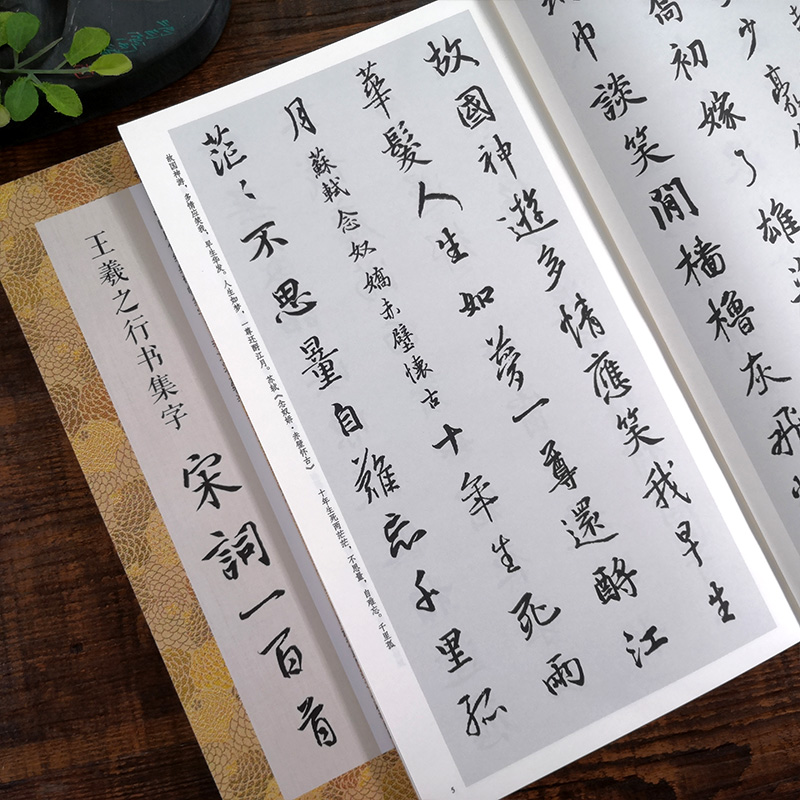 少豪
喬初嫁了雄姿
巾談笑間檣櫓灰飛
故國神遊多情應笑我早生
華髮人生如夢一尊還酹江
月 蘇軾念奴嬌赤壁懷古 十年生死兩
茫〻不思量自難忘千里孤
故国神游，多情应笑我，早生华发。人生如梦，一尊还酹江月。苏轼《念奴娇·赤壁怀古》 十年生死两茫茫，不思量，自难忘。千里孤
5
王羲之行书集字
宋詞一百首